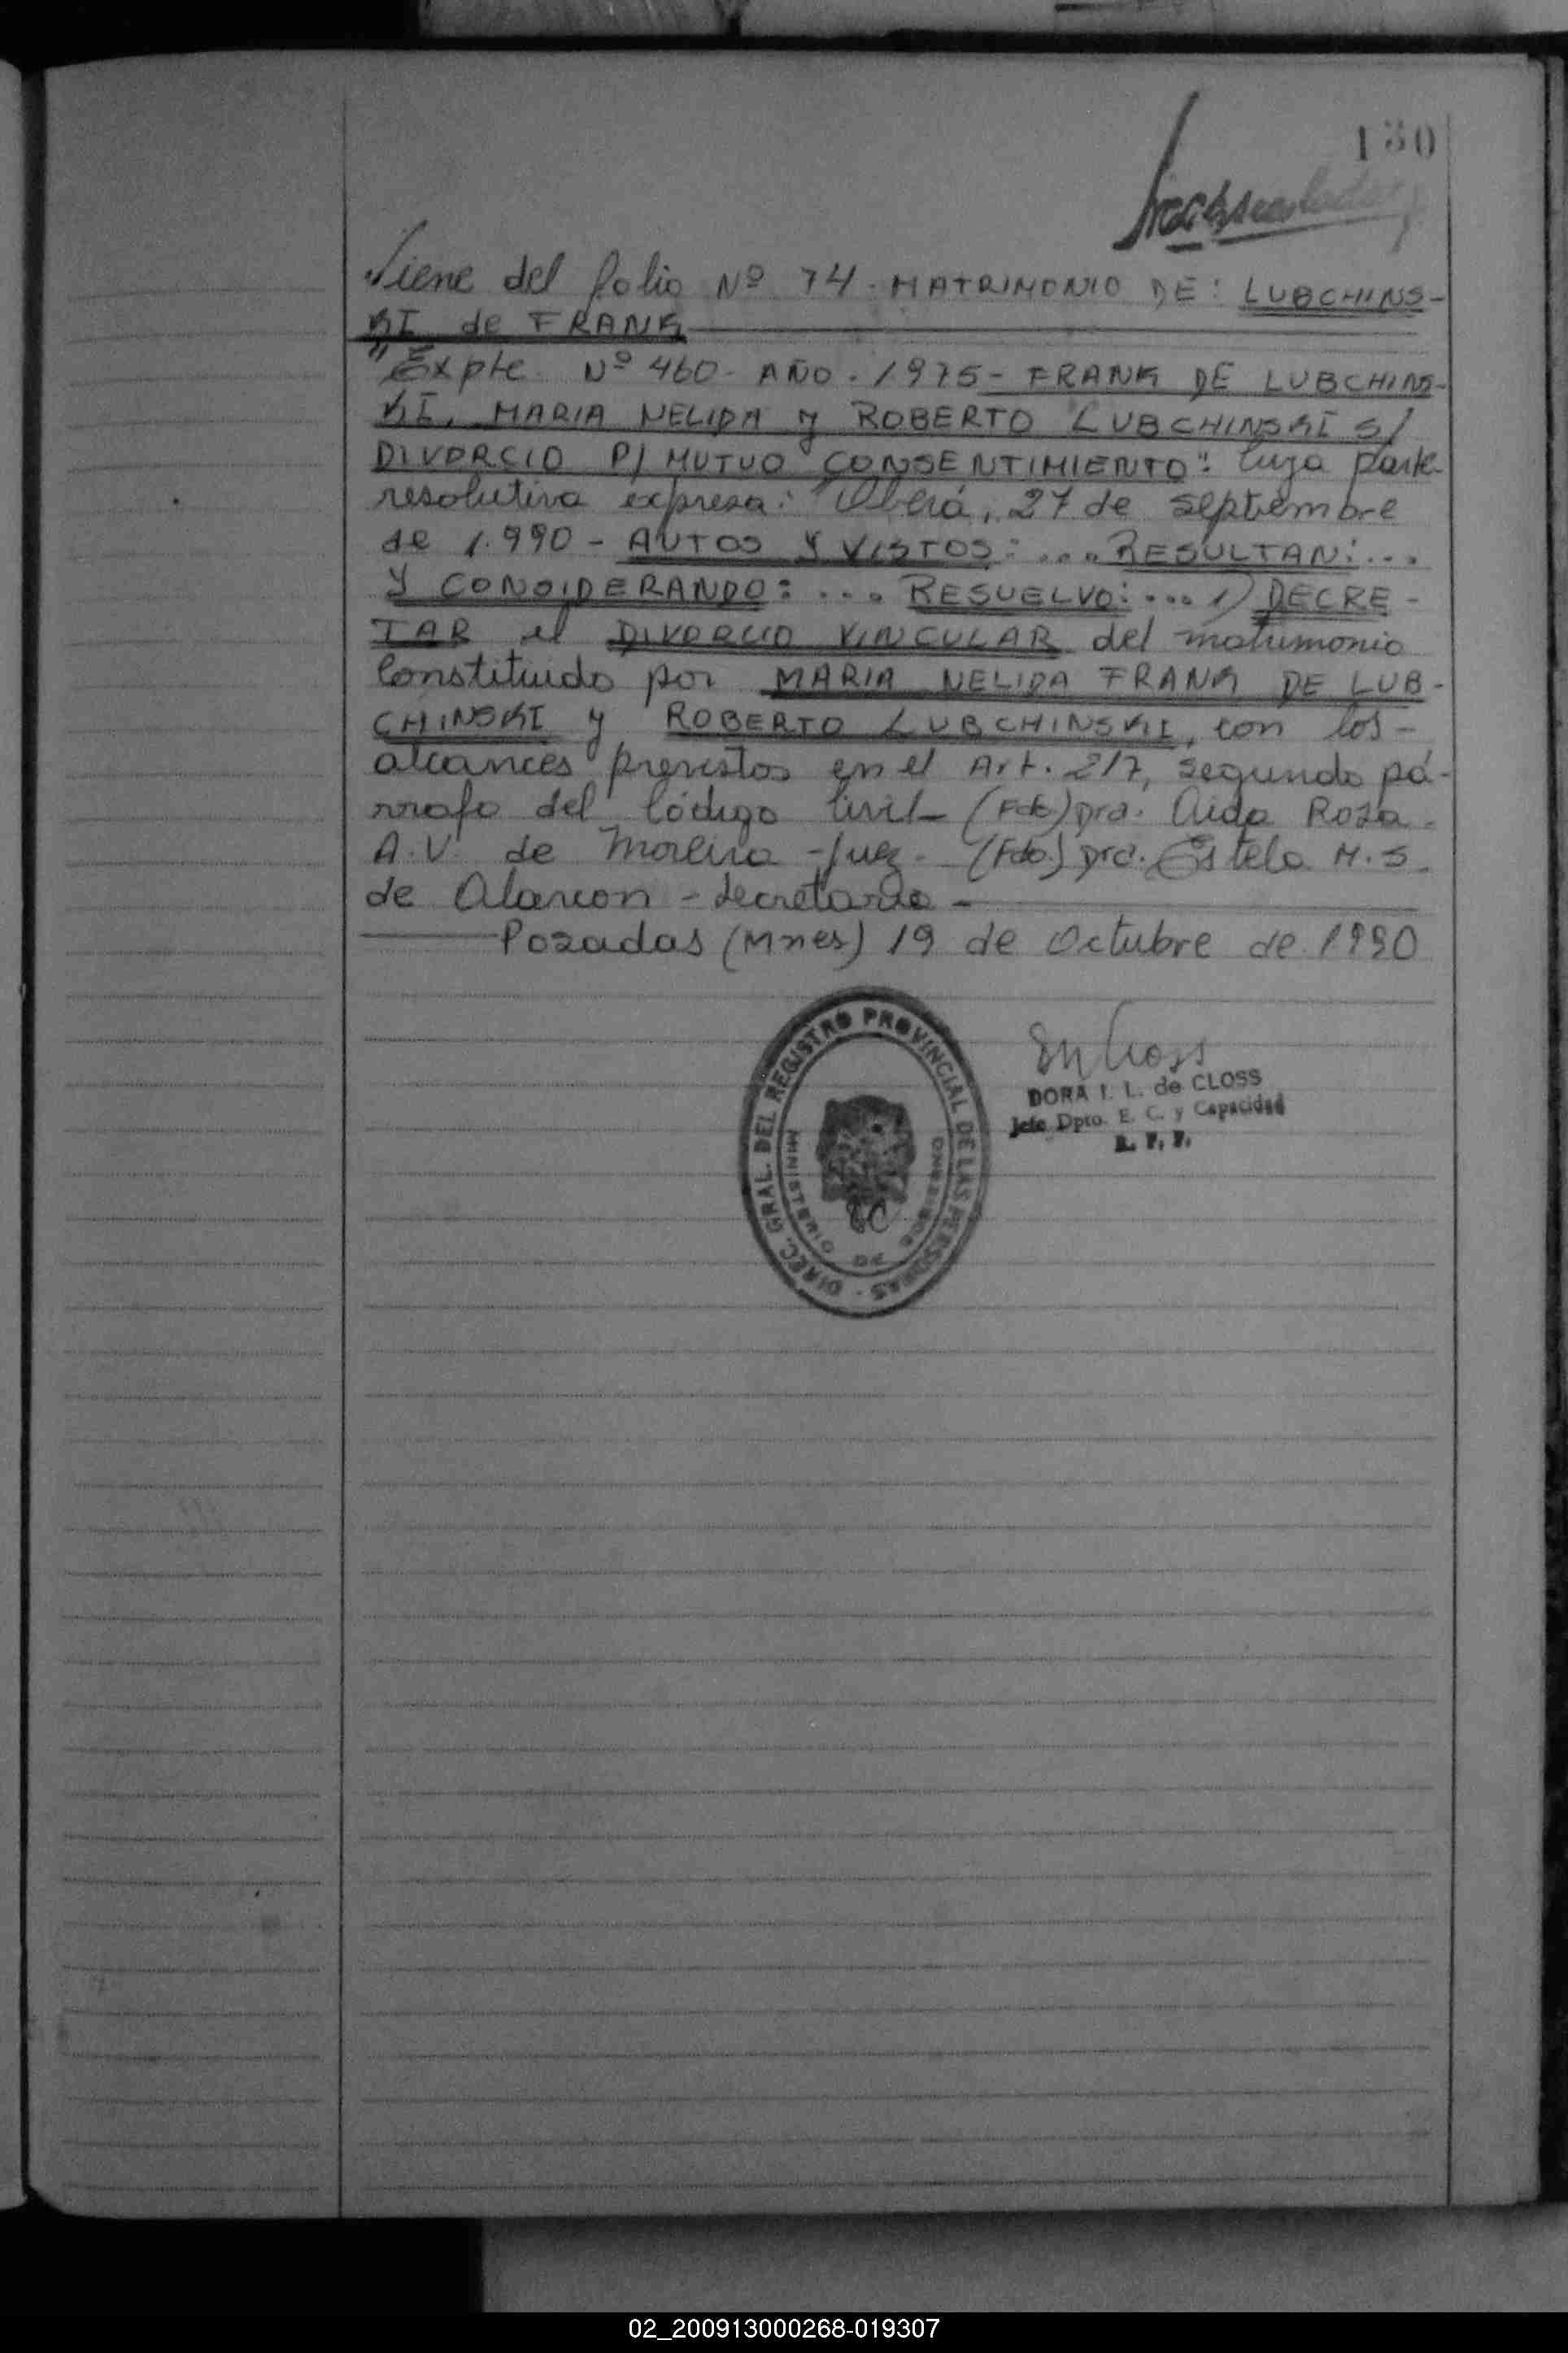 130
Viene del folio Nº 74. MATRIMONIO DE: LUBCHINS-
KI de FRANK
"Expte. Nº 460. AÑO. 1975- FRANK DE LUBCHINS-
KI, MARIA NELIDA y ROBERTO LUBCHINSKI S/
DIVORCIO P/ MUTUO CONSENTIMIENTO". Cuya parte
resolutiva expresa: "Oberá, 27 de septiembre
de 1.990 - AUTOS Y VISTOS: .... RESULTAN: ...
Y CONSIDERANDO: .... RESUELVO: .... 1) DECRE-
TAR el DIVORCIO VINCULAR del matrimonio
Constituido por MARIA NELIDA FRANK DE LUB-
CHINSKI y ROBERTO LUBCHINSKI, con los-
alcances previstos en el Art. 217, segundo pá-
rrafo del Código Civil- (Fdo) Dra. Aida Rosa.
A.V. de Moreira - Juez. (Fdo.) Dra. Estela M.S.
de Alarcon - Secretaria -
Posadas (Mnes) 19 de Octubre de 1990
DIREC. GRAL. DEL REGISTRO PROVINCIAL DE LAS PERSONAS
MINISTERIO DE GOBIERNO
DORA I. L. de CLOSS
Jefe Dpto. E. C. y Capacidad
R. P. P.
02_200913000268-019307